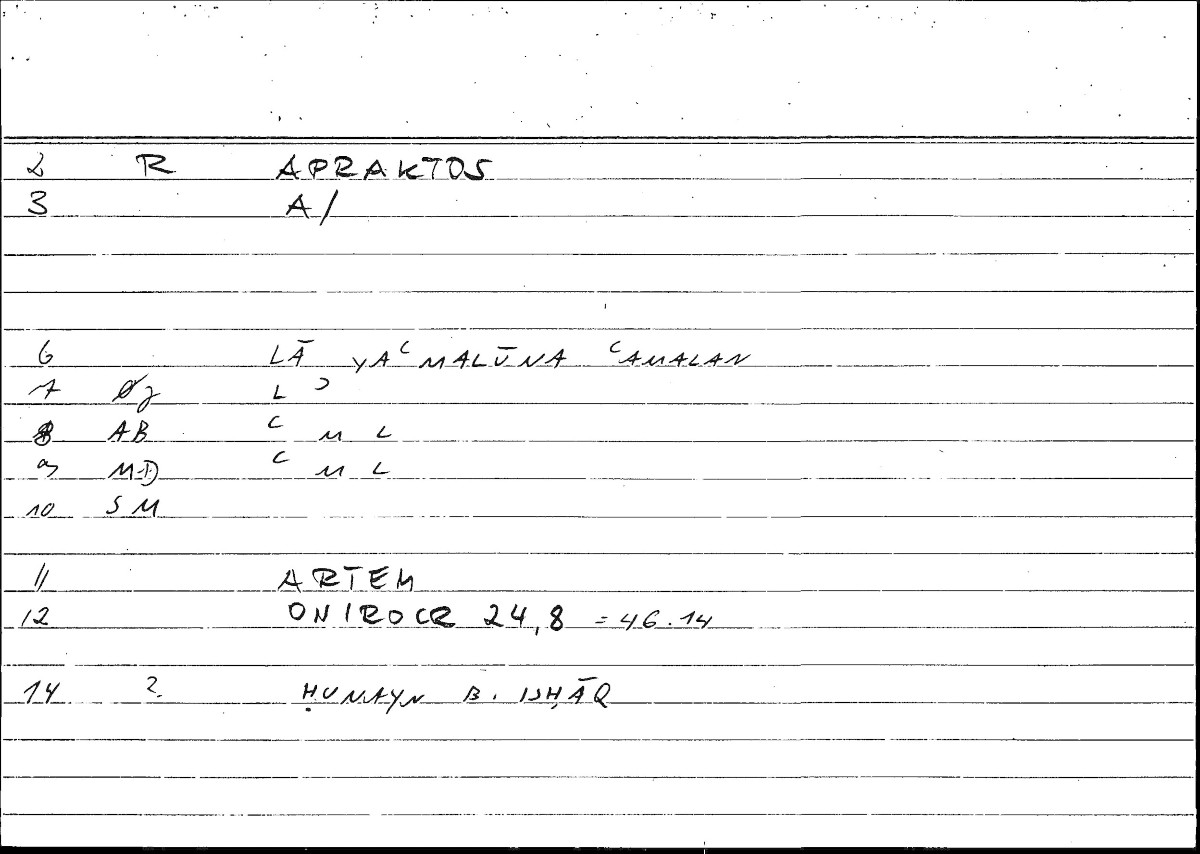 2 R APRAKTOS
3 A/
6 LĀ YAʿMALŪNA ʿAMALAN
7 Øj L ʾ
8 AB ʿ M L
9 MD ʿ M L
10 SM
11 ARTEM
12 ONIROCR 24,8 = 46.14
14 ? ḤUNAYN B. ISḤĀQ